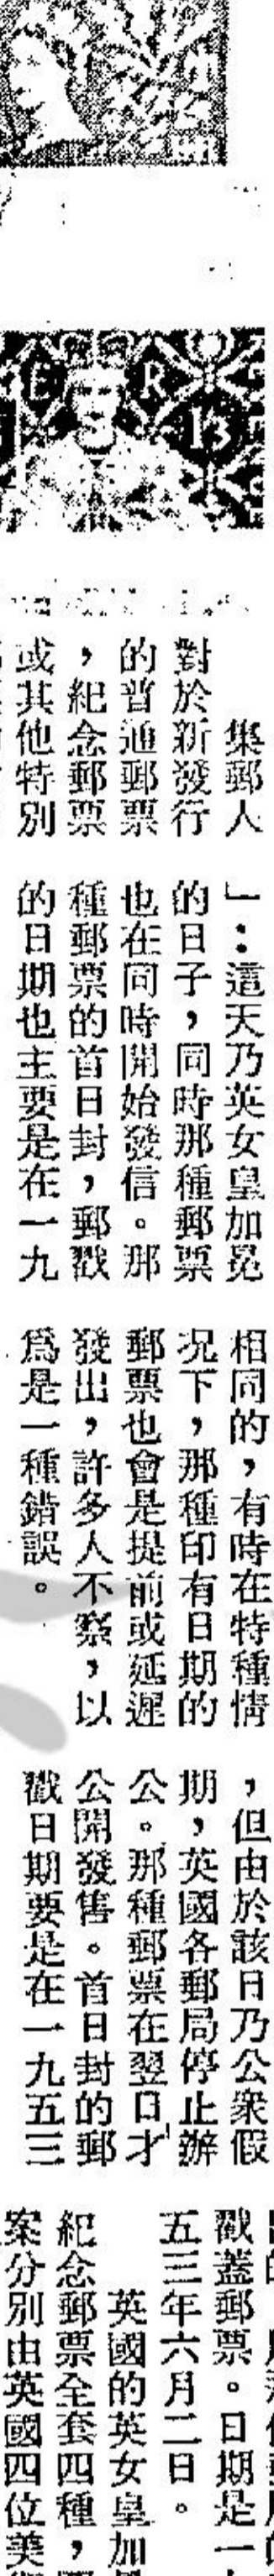 E R
13
集郵人
對於新發行
的普通郵票
，紀念郵票
或其他特別
」：這天乃英女皇加冕
的日子，同時那種郵票
也在同時開始發信。那
種郵票的首日封，郵戳
的日期也主要是在一九
相同的，有時在特種情
况下，那種印有日期的
郵票也會是提前或延遲
發出，許多人不察，以
爲是一種錯誤。
，但由於該日乃公衆假
期，英國各郵局停止辦
公。那種郵票在翌日才
公開發售。首日封的郵
戳日期要是在一九五三
戳蓋郵票。日期是一
五三年六月二日。
英國的英女皇加
紀念郵票全套四種，
案分別由英國四位美